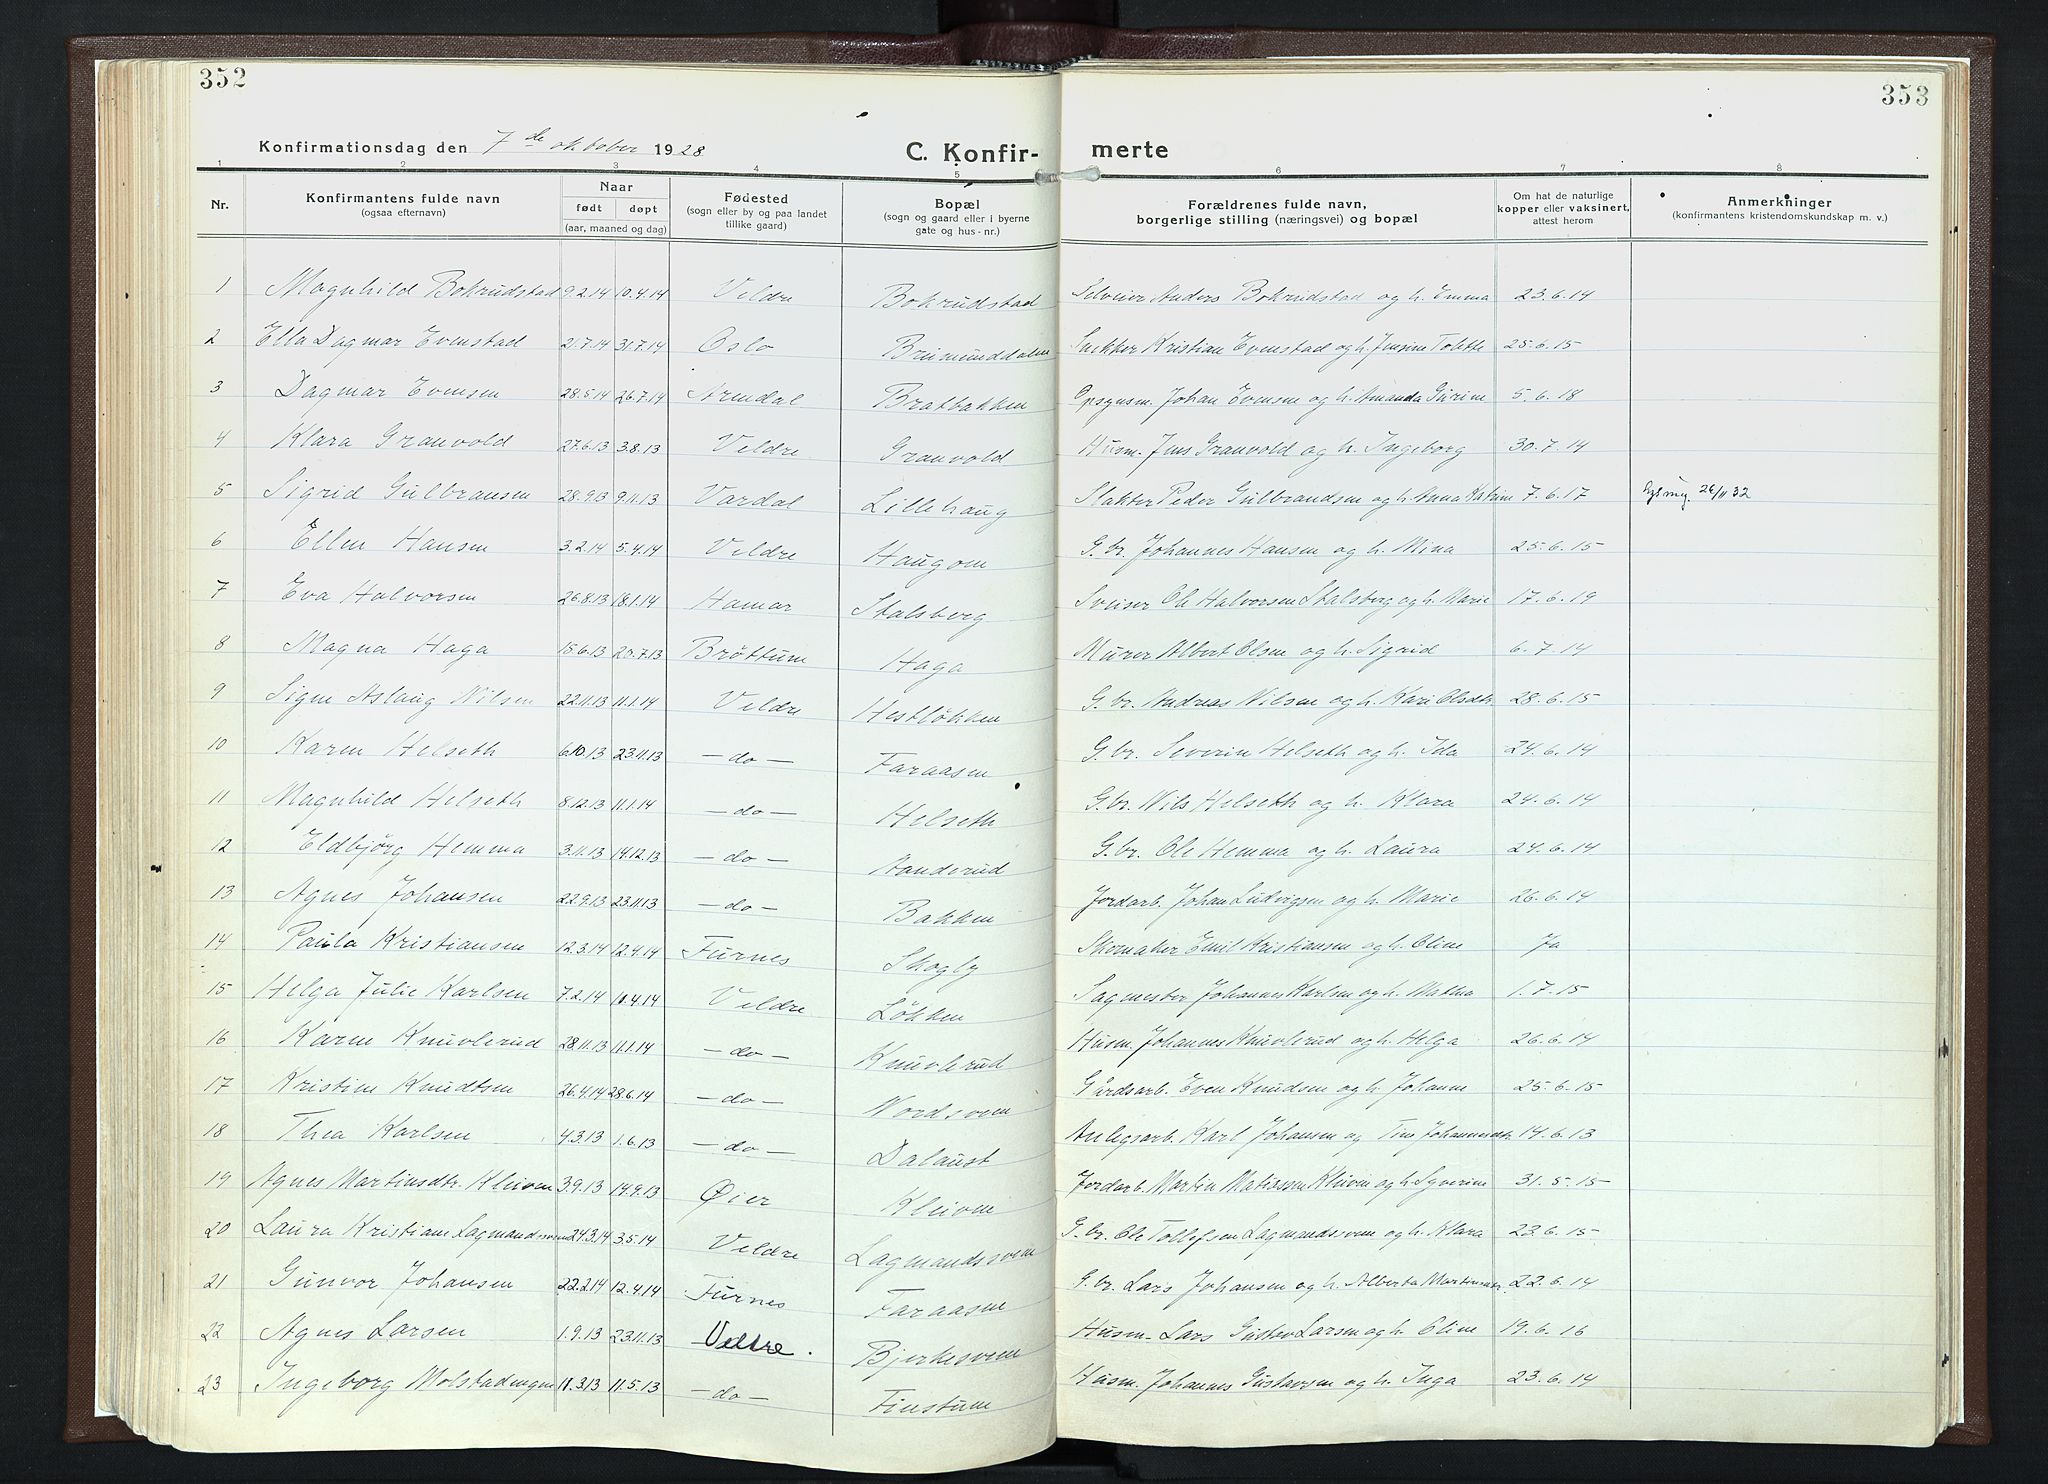 352
353
Konfirmationsdag den 7de oktober 1928
C. Konfir- merte
1 2 3 4 5 6 7 8
Nr.
Konfirmantens fulde navn
(ogsaa efternavn)
Naar
født døpt
(aar, maaned og dag)
Fødested
(sogn eller by og paa landet
tillike gaard)
Bopæl
(sogn og gaard eller i byerne
gate og hus-nr.)
Forældrenes fulde navn,
borgerlige stilling (næringsvei) og bopæl
Om hat de naturlige
kopper eller vaksinert,
attest herom
Anmerkninger
(konfirmantens kristendomskundskap m. v.)
1 Magnhild Bokrudstad 9.2.14 10.4.14 Veldre Bokrudstad Selveier Anders Bokrudstad og h. Emma 23.6.14
2 Ella Dagmar Evenstad 21.7.14 31.7.14 Oslo Brumunddalen Snekker Kristian Evenstad og h. Jensine Tolette 25.6.15
3 Dagmar Evensen 28.5.14 26.7.14 Arendal Bratbakken Opsynsm. Johan Evensen og h. Amanda Gurine 5.6.18
4 Klara Granvold 27.6.13 3.8.13 Veldre Granvold Husm. Jens Granvold og h. Ingeborg 30.7.14
5 Sigrid Gulbransen 28.9.13 9.11.13 Vardal Lillehaug Slakter Peder Gulbrandsen og h. Anna Katrine 7.6.17 26/11 32
6 Ellen Hansen 3.2.14 5.4.14 Veldre Haugom G.br. Johannes Hansen og h. Mina 25.6.15
7 Eva Halvorsen 26.8.13 18.1.14 Hamar Stalsberg Sveiser Ole Halvorsen Stalsberg og h. Marie 17.6.19
8 Magna Haga 15.6.13 20.7.13 Brøttum Haga Murer Albert Olsen og h. Sigrid 6.7.14
9 Signe Aslaug Nilsen 22.11.13 11.1.14 Veldre Hestløkken G.br. Andreas Nilsen og h. Kari Olsdtr. 28.6.15
10 Karen Helseth 6.10.13 23.11.13 — do — Faraasen G.br. Severin Helseth og h. Ida 24.6.14
11 Magnhild Helseth 8.12.13 11.1.14 — do — Helseth G.br. Nils Helseth og h. Klara 24.6.14
12 Eldbjørg Hemma 3.11.13 14.12.13 — do — Aanderud G.br. Ole Hemma og h. Laura 24.6.14
13 Agnes Johansen 22.9.13 23.11.13 — do — Bakken Jordarb. Johan Ludvigsen og h. Marie 26.6.14
14 Paula Kristiansen 12.3.14 12.4.14 Furnes Skogly Skomaker Emil Kristiansen og h. Oline Ja
15 Helga Julie Karlsen 7.2.14 10.4.14 Veldre Løkken Sagmester Johannes Karlsen og h. Mathea 1.7.15
16 Karen Knuvlerud 28.11.13 11.1.14 — do — Knuvlerud Husm. Johannes Knuvlerud og h. Helga 26.6.14
17 Kristine Knudtsen 26.4.14 28.6.14 — do — Nordsveen Gårdsarb. Even Knudsen og h. Johanne 25.6.15
18 Thea Karlsen 4.3.13 1.6.13 — do — Dalaust Anlegsarb. Karl Johansen og Tine Johannesdtr. 14.6.13
19 Agnes Martinsdtr. Kleiven 3.9.13 14.9.13 Øier Kleiven Jordarb. Martin Matissen Kleiven og h. Syverine 31.5.15
20 Laura Kristiane Lagmandssveen 24.3.14 3.5.14 Veldre Lagmandssveen G.br. Ole Tollefsen Lagmandssveen og h. Klara 23.6.15
21 Gunvor Johansen 22.2.14 12.4.14 Furnes Faraasen G.br. Lars Johansen og h. Alberta Martinsdtr. 22.6.14
22 Agnes Larsen 1.9.13 23.11.13 Veldre. Bjerkesveen Husm. Lars Gustav Larsen og h. Oline 19.6.16
23 Ingeborg Molstadengen 11.3.13 11.5.13 — do — Finstuen Husm. Johannes Gustavsen og h. Inga 23.6.14